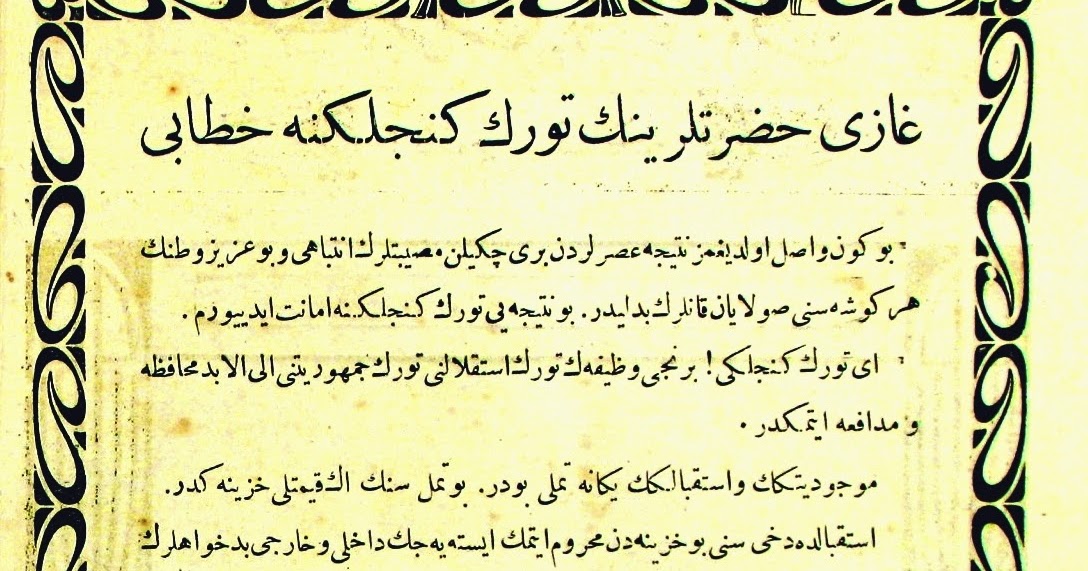 غازى حضرتلرينك تورك كنجلكنه خطابى
بو كون واصل اولديغمز نتيجه عصرلردن برى چكيلن مصيبتلرك انتباهى و بو عزيز وطنك
هر كوشه سنى صولايان قانلرك بدليدر. بو نتيجه يى تورك كنجلكنه امانت ايدييورم.
اى تورك كنجلكى! برنجى وظيفه ك تورك استقلالنى تورك جمهوريتنى الى الابد محافظه
و مدافعه ايتمكدر.
موجوديتكك و استقبالكك يكانه تملى بودر. بو تمل سنك اك قيمتلى خزينه كدر.
استقبالده دخى سنى بو خزينه دن محروم ايتمك ايسته يه جك داخلى و خارجى بدخواهلرك